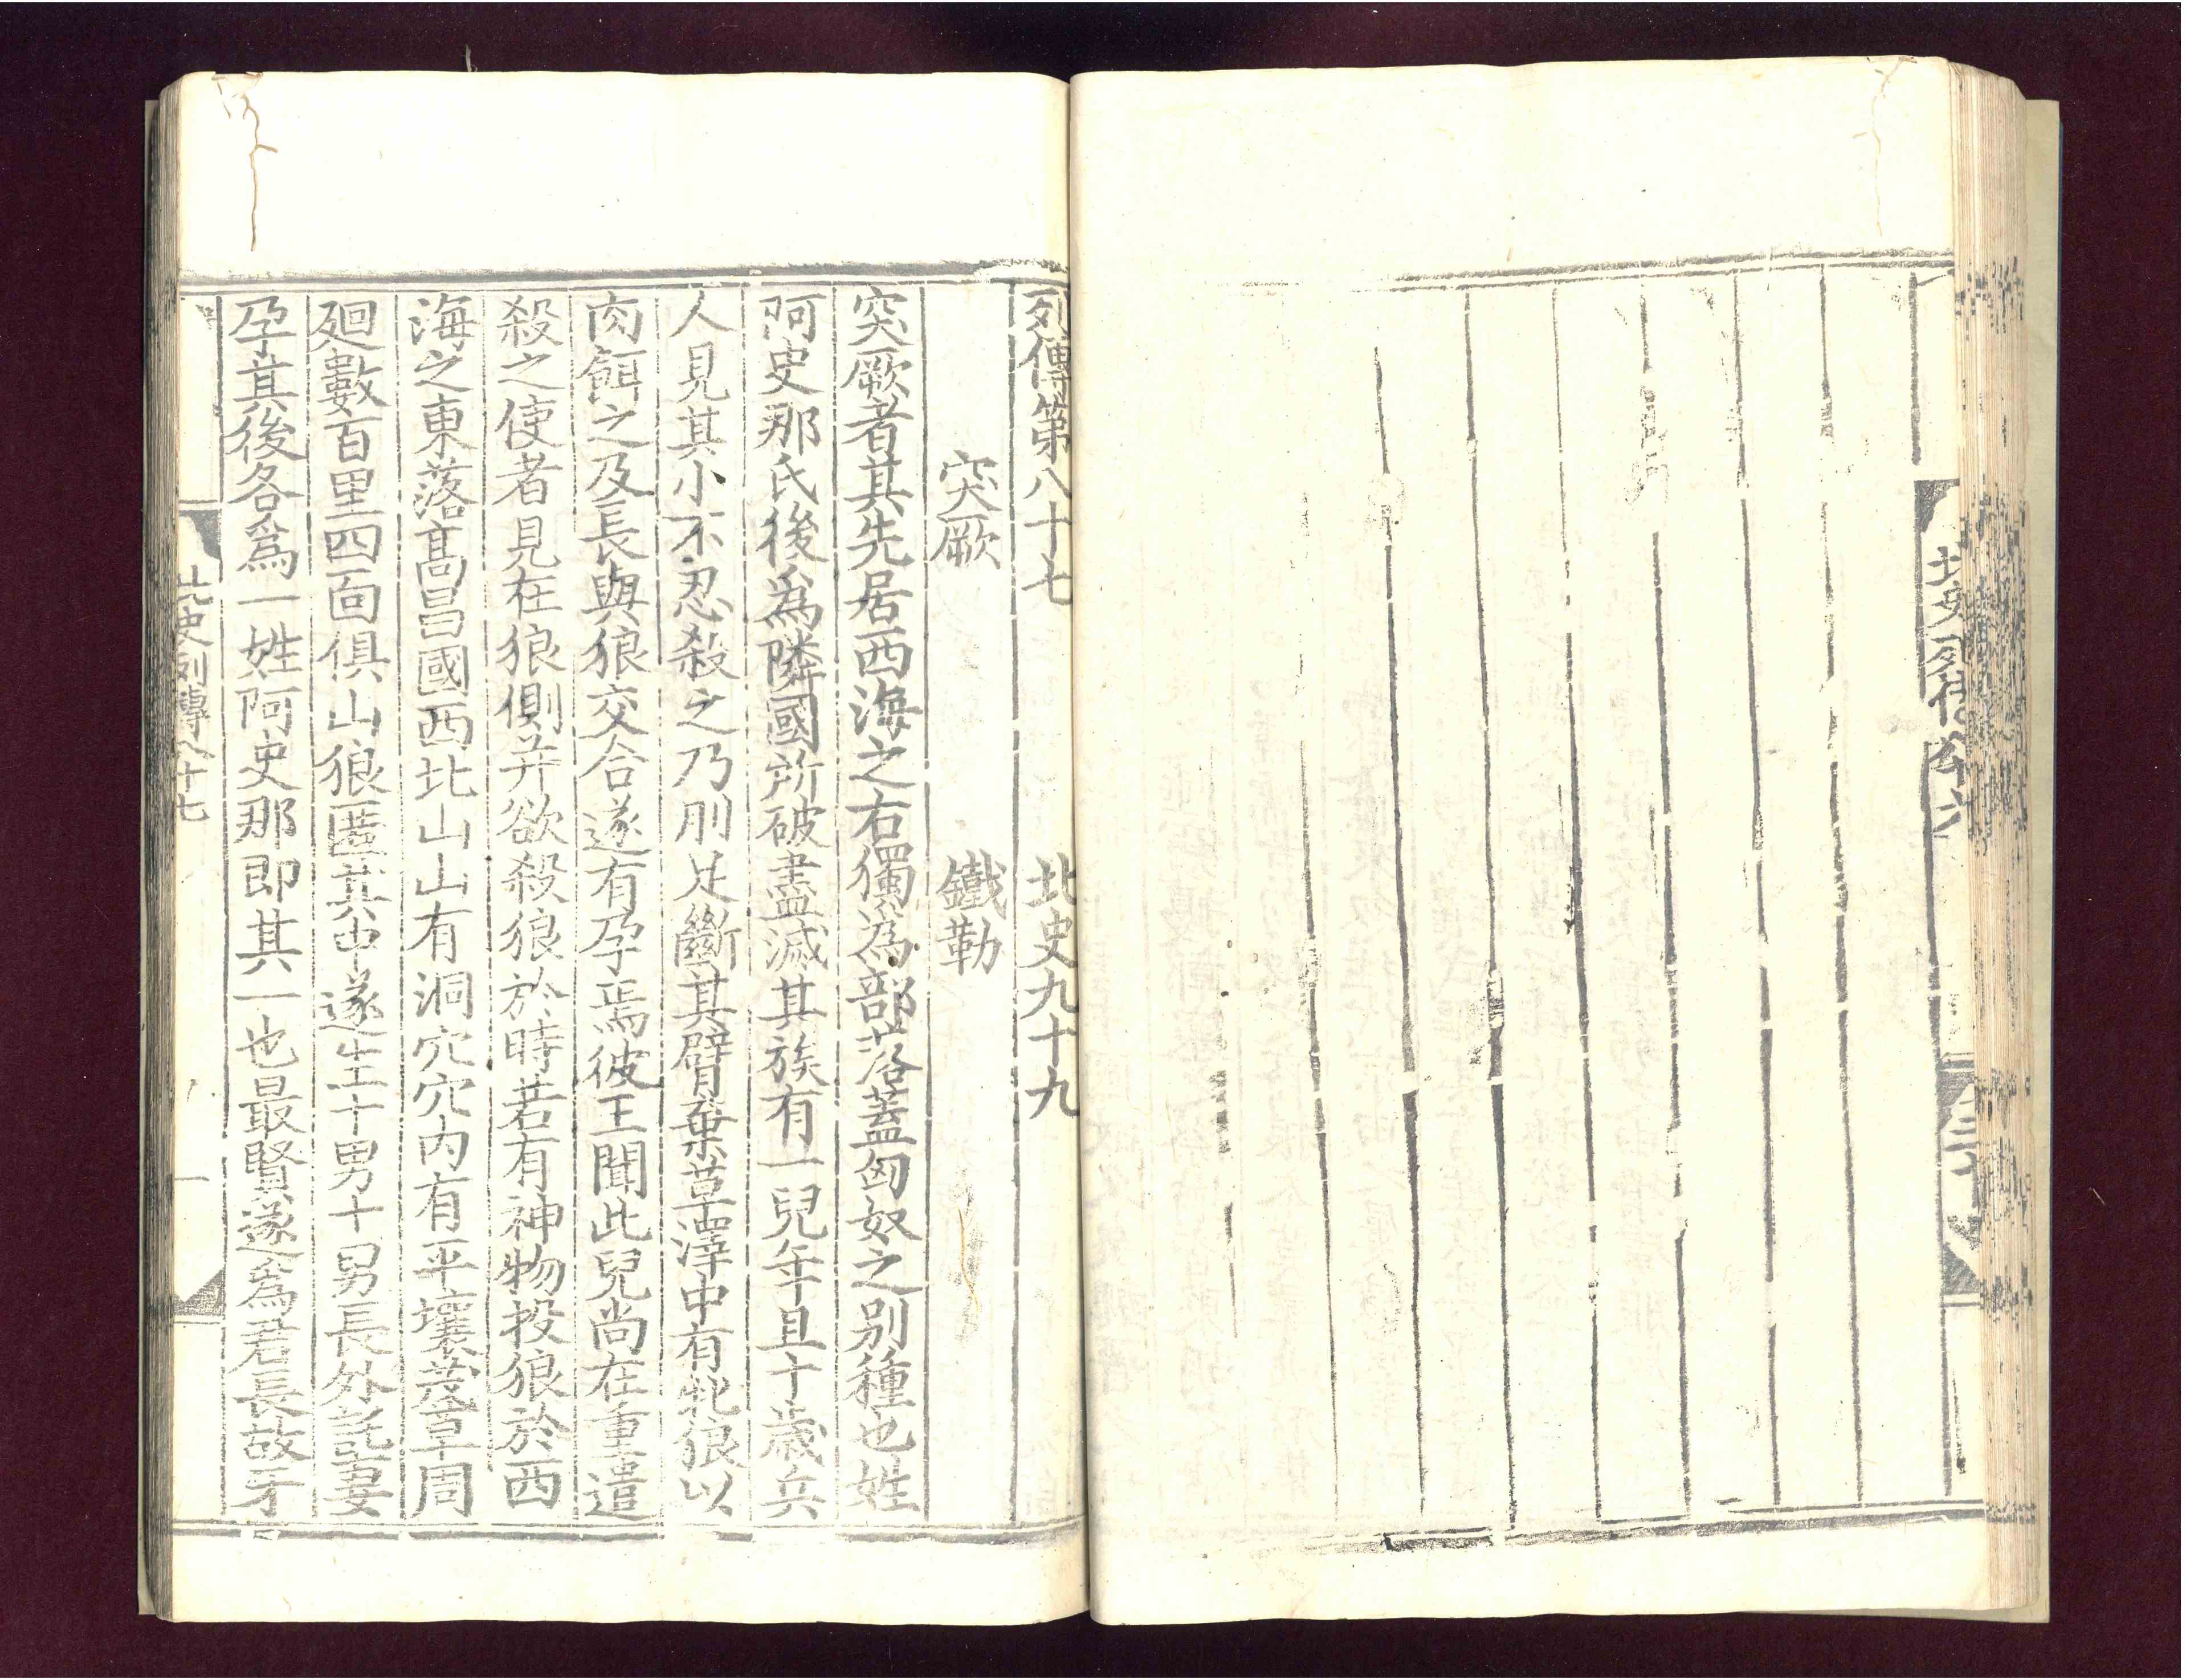 北史列傳卷八十六
三十
列傳第八十七　北史九十九
突厥　鐵勒
突厥者其先居西海之右獨為部落蓋匈奴之别種也姓
阿史那氏後為隣國所破盡滅其族有一兒年且十歲兵
人見其小不忍殺之乃刖足斷其臂棄草澤中有牝狼以
肉餌之及長與狼交合遂有孕焉彼王聞此兒尚在重遣
殺之使者見在狼側并欲殺狼於時若有神物投狼於西
海之東落高昌國西北山山有洞穴穴内有平壤茂草周
廻數百里四面俱山狼匿其中遂生十男十男長外託妻
孕其後各為一姓阿史那即其一也最賢遂為君長故牙
北史列傳八十七
一